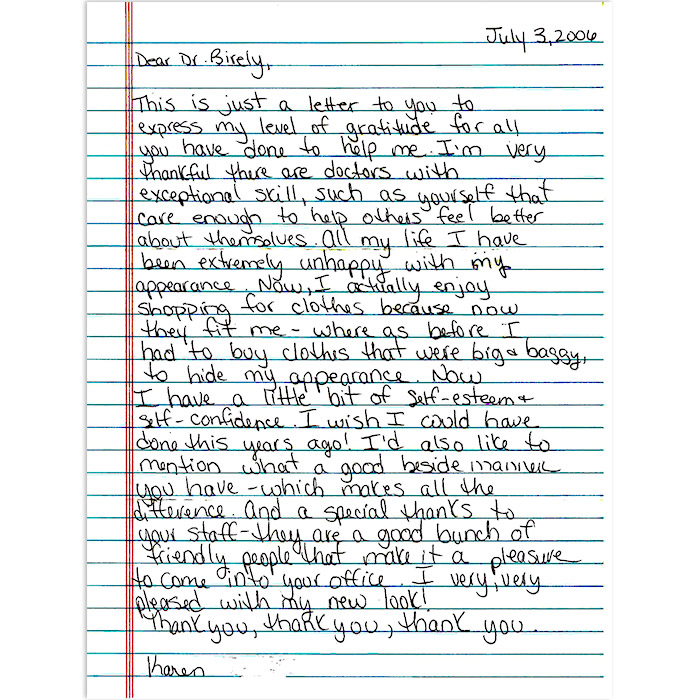 July 3, 2006
Dear Dr. Birely,
This is just a letter to you to
express my level of gratitude for all
you have done to help me. I'm very
thankful there are doctors with
exceptional skill, such as yourself that
care enough to help others feel better
about themselves. All my life I have
been extremely unhappy with my
appearance. Now, I actually enjoy
shopping for clothes because now
they fit me - where as before I
had to buy clothes that were big & baggy,
to hide my appearance. Now
I have a little bit of self-esteem &
self-confidence. I wish I could have
done this years ago! I'd also like to
mention what a good beside manner
you have - which makes all the
difference. And a special thanks to
your staff - they are a good bunch of
friendly people that make it a pleasure
to come into your office. I very, very
pleased with my new look!
Thank you, thank you, thank you.
Karen